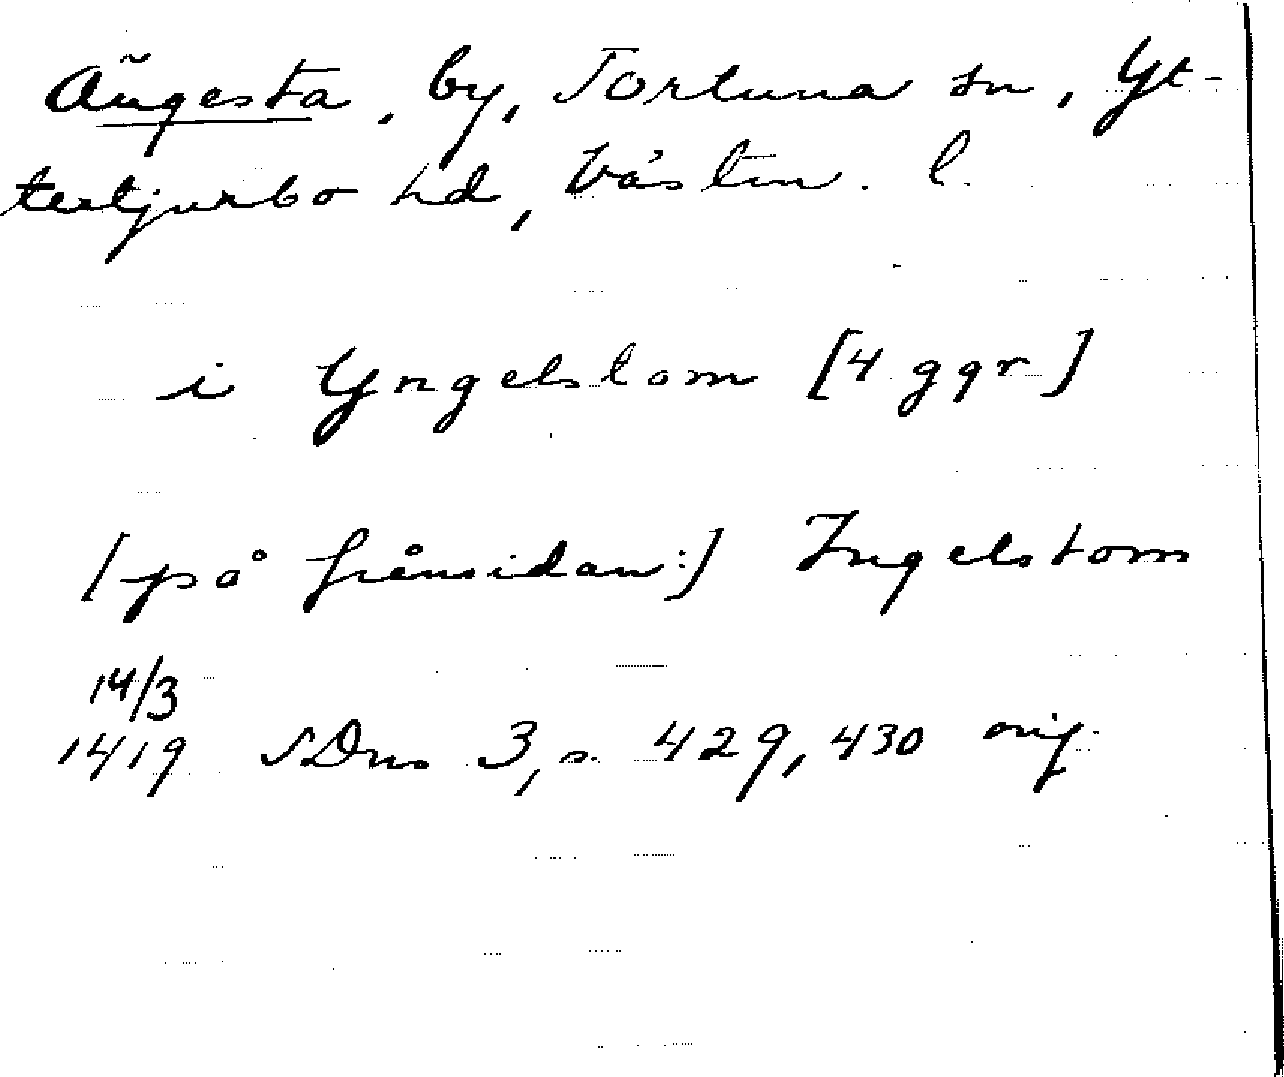 Ängesta, by, Tortuna sn, Yt-
tertjurbo hd, Västm. l.
i Yngelstom [4 ggr]
[på frånsidan:] Ingelstom
14/3
1419 SDns 3, s. 429, 430 orig.